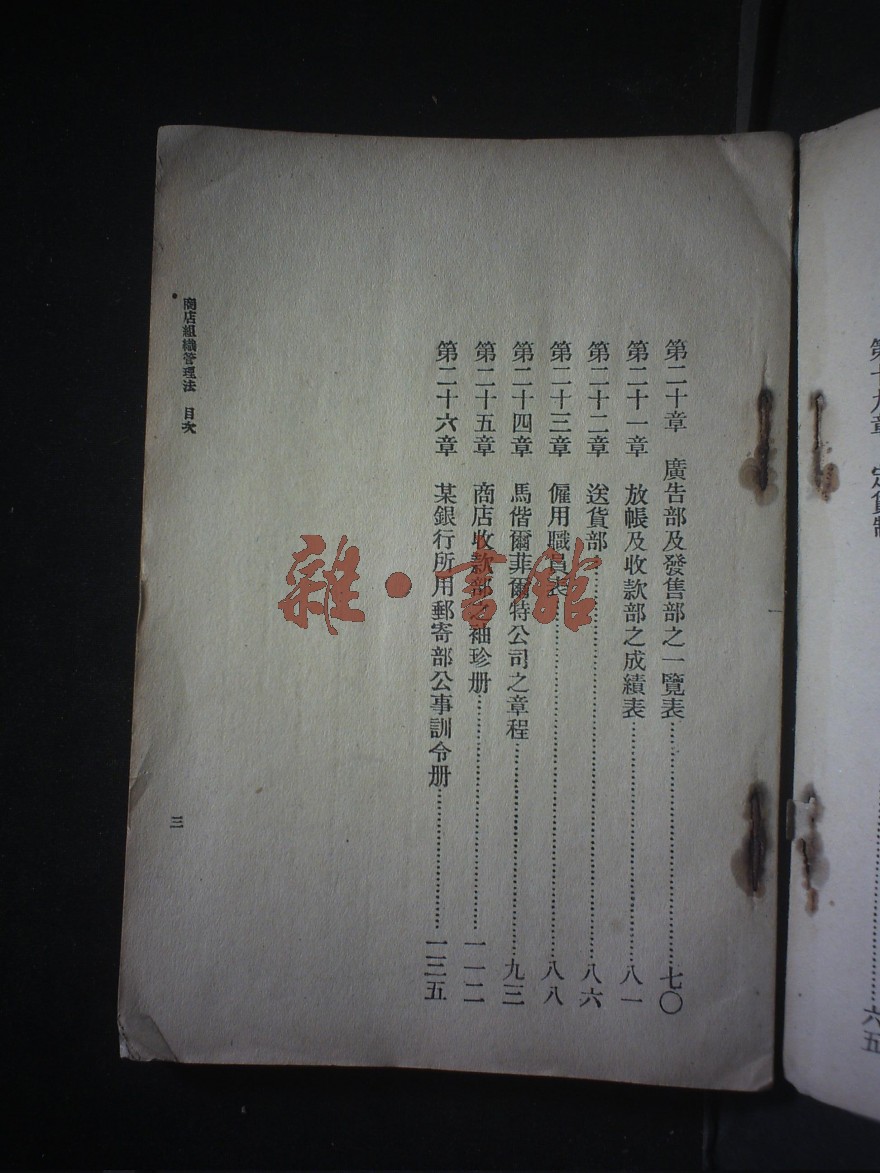 第十九章 定貨制……六五
第二十章 廣告部及發售部之一覽表……七〇
第二十一章 放帳及收款部之成績表……八一
第二十二章 送貨部……八六
第二十三章 僱用職員表……八八
第二十四章 馬偕爾菲爾特公司之章程……九三
第二十五章 商店收款部之袖珍册……一一二
第二十六章 某銀行所用郵寄部公事訓令册……一三五
商店組織管理法 目次
三
雜·書館